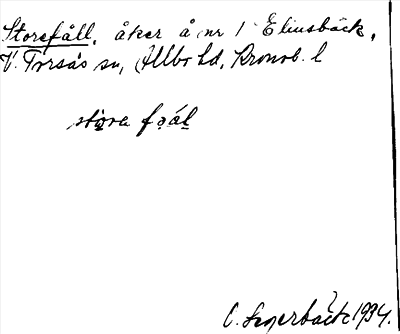 Storefåll, åker å nr 1 Eliusbäck,
V. Torsås sn, Allbo hd, Kronob. l
stora fål
C. Segerbäck 1934.